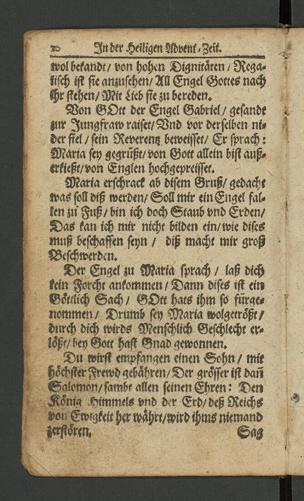 20 In der Heiligen Advent-Zeit.
wol bekandt / von hohen Dignitäten / Rega-
lisch ist sie anzusehen / All Engel Gottes nach
ihr stehen / Mit Lieb sie zu bereden.
Von GOtt der Engel Gabriel / gesandt
zur Jungfraw raiset / Vnd vor derselben ni-
der fiel / sein Reverentz beweisset / Er sprach:
Maria sey gegrüßt / von Gott allein bist auß-
erkießt / von Englen hochgepreisset.
Maria erschrack ab disem Gruß / gedacht
was soll diß werden / Soll mir ein Engel fal-
len zu Fuß / bin ich doch Staub vnd Erden /
Das kan ich mir nicht bilden ein / wie dises
muß beschaffen seyn / diß macht mir groß
Beschwerden.
Der Engel zu Maria sprach / laß dich
kein Forcht ankommen / Dann dises ist ein
Göttlich Sach / GOtt hats ihm so fürge-
nommen / Drumb sey Maria wolgetröst /
durch dich wirds Menschlich Geschlecht er-
lößt / bey Gott hast Gnad gewonnen.
Du wirst empfangen einen Sohn / mit
höchster Frewd gebähren / Der grösser ist dañ
Salomon / sambt allen seinen Ehren: Den
König Himmels vnd der Erd / deß Reichs
von Ewigkeit her währt / wird ihms niemand
zerstören.
Sag